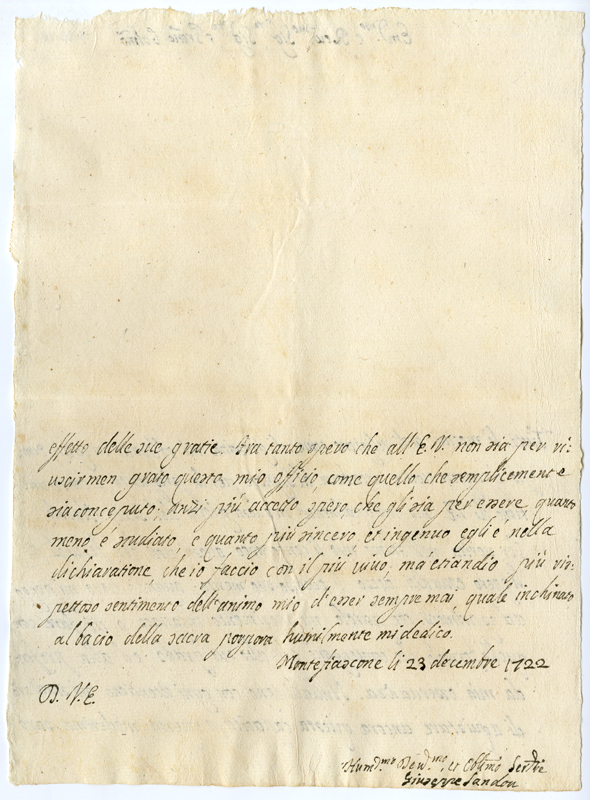 effetto delle sue gratie. Fra tanto spero che all' E. V. non sia per ri:
uscir men grato questo mio officio, come quello che semplicemente
sia conceputo; anzi più accetto spero, che gli sia per essere, quanto
meno é studiato, e quanto più sincero, et ingenuo egli é nella
dichiaratione, che io faccio con il più viuo, ma'etiandio più ris:
pettoso sentimento dell'animo mio d'esser sempre mai, quale inchinato
al bacio della sacra porpora humilmente mi dedico.
Montefiascone li 23 decembre 1722
D. V. E.
Hum.mo Deu.mo, et Obl.mo Ser.re
Giuseppe